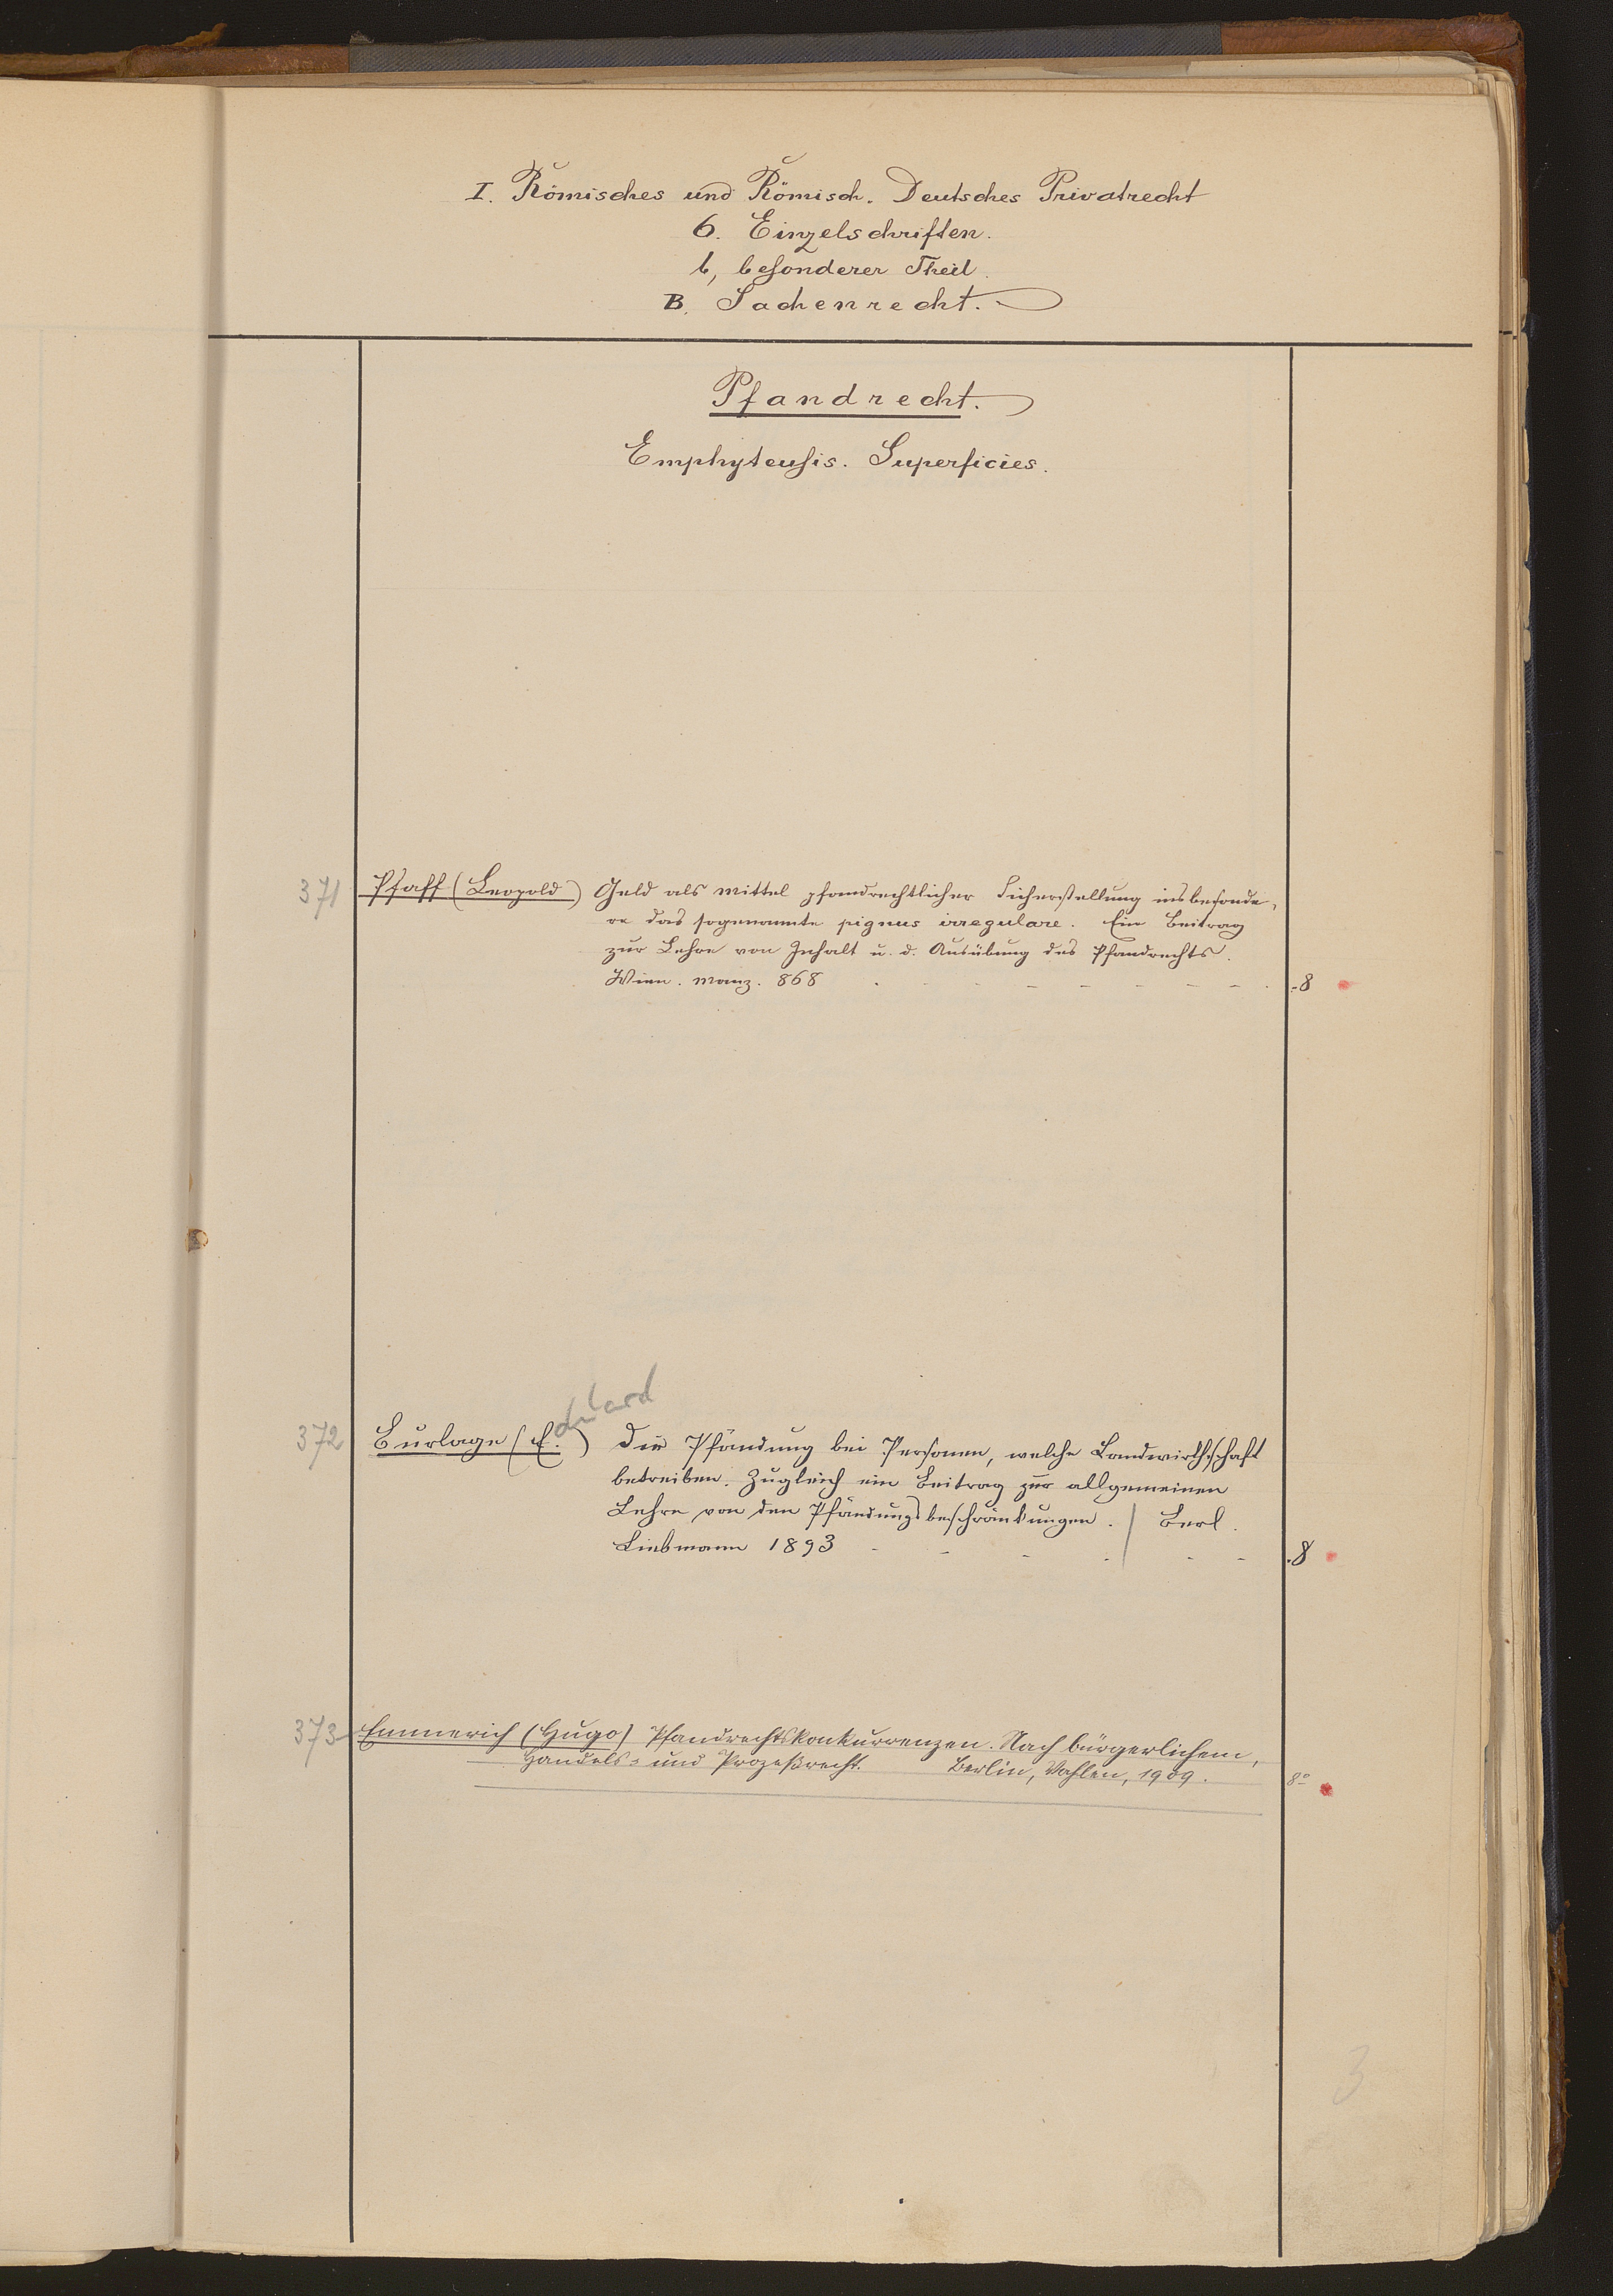 I. Römisches und Römisch. Deutsches Privatrecht
6. Einzelschriften.
b, besonderer Theil.
B. Sachenrecht.
Pfandrecht.
Emphyteusis. Superficies.
371 Pfaff (Leopold) Geld als Mittel pfandrechtlicher Sicherstellung insbesonde-
re das sogenannte pignus irregulare. Ein Beitrag
zur Lehre von Inhalt u. d. Ausübung des Pfandrechts.
Wien. Manz. 868 - - - - - - - 8
eduard
372 Burlage (E.) Die Pfändung bei Personen, welche Landwirthschaft
betreiben. Zugleich ein Beitrag zur allgemeinen
Lehre von den Pfändungsbeschränkungen. / Berl.
Liebmann 1893 - - - - - - 8
373 Emmerich (Hugo) Pfandrechtskonkurrenzen. Nach bürgerlichem,
Handels- und Prozeßrecht. Berlin, Vahlen, 1909. 8°
3